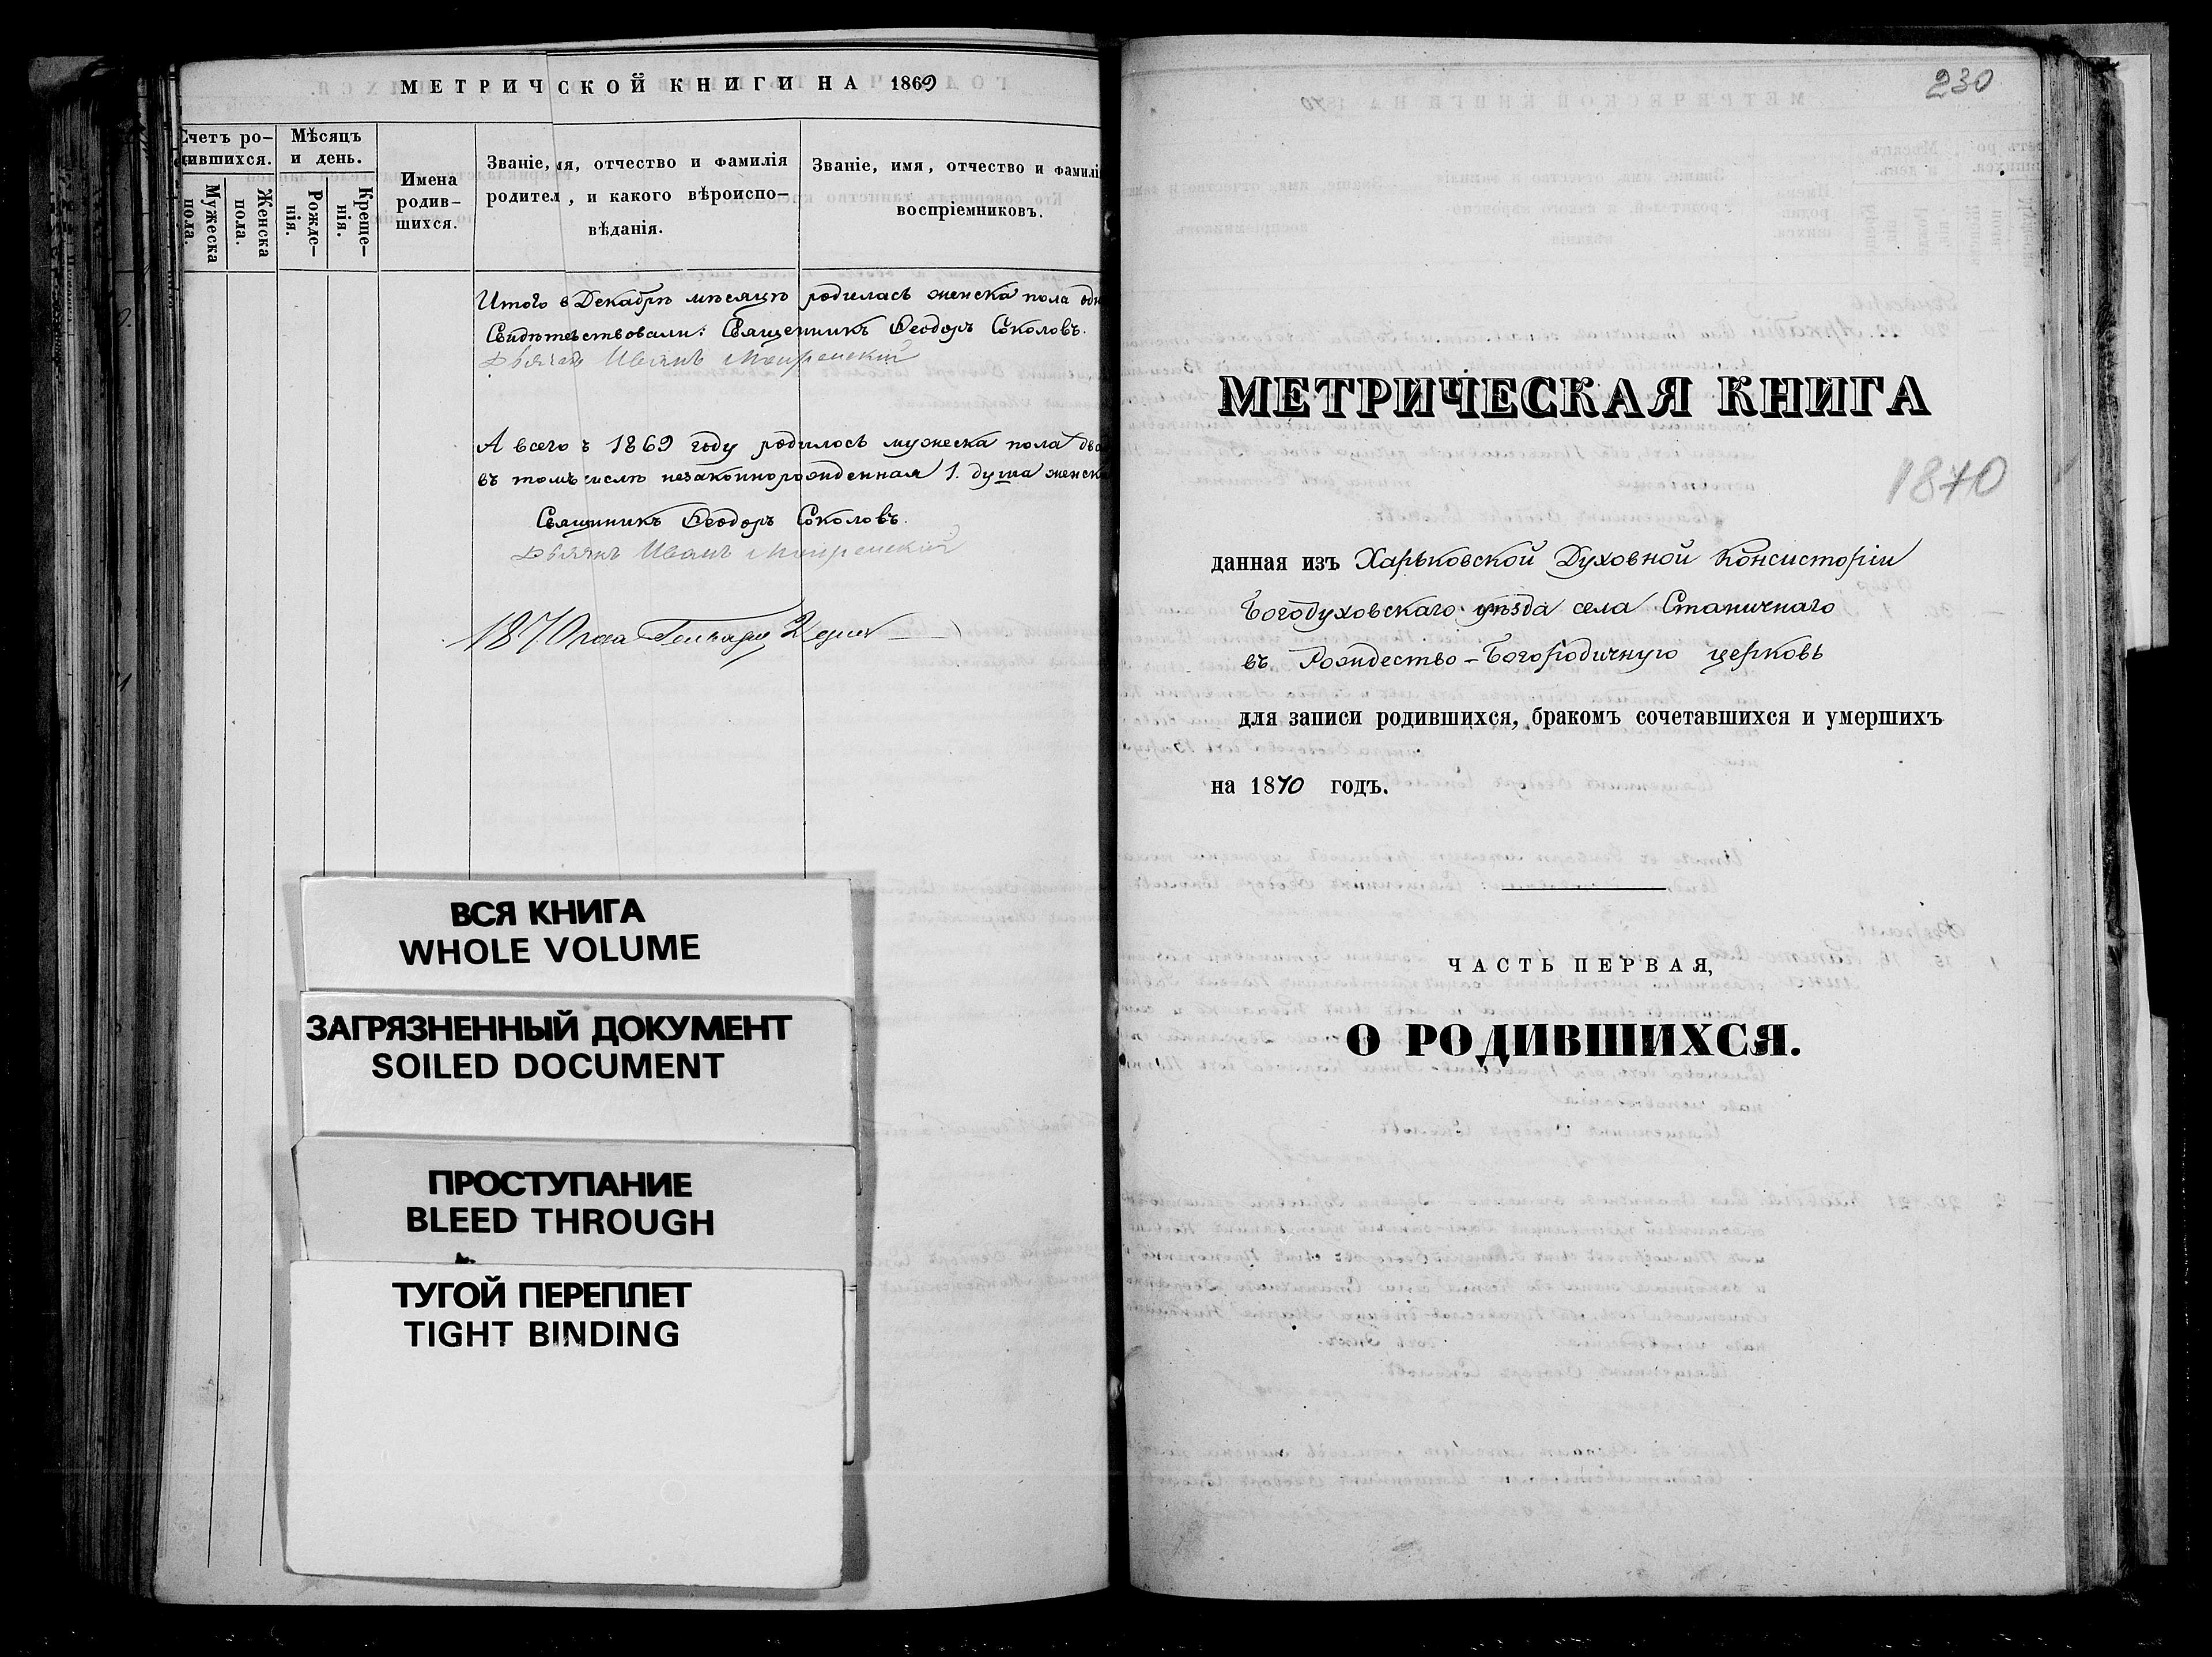 МЕТРИЧСКОЙ КНИГИ НА 1869
Счетъ ро-
дившихся.
Мужеска
пола.
Женска
пола.
Мѣсяцъ
и день.
Рожде-
нія.
Креще-
нія.
Имена
родив-
шихся.
Званіе, мя, отчество и фамилія
родител , и какого вѣроиспо-
вѣданія.
Званіе, имя, отчество и фамилі
воспріемниковъ.
Итого в Декабрѣ мѣсяцѣ родилась женска пола одн
Свидѣтельствовали: Священникъ Ѳеодоръ Соколовъ.
Дьячекъ Иванъ
А всего в 1869 году родилось мужеска пола два
въ томъ числѣ незаконнорожденная 1. душа женск
Священникъ Ѳеодоръ Соколовъ.
Дьячекъ Иванъ
1870 года Генваря 2 дня
ВСЯ КНИГА
WHOLE VOLUME
ЗАГРЯЗНЕННЫЙ ДОКУМЕНТ
SOILED DOCUMENT
ПРОСТУПАНИЕ
BLEED THROUGH
ТУГОЙ ПЕРЕПЛЕТ
TIGHT BINDING
230
МЕТРИЧЕСКАЯ КНИГА
1870
данная изъ Харьковской Духовной Консисторіи
Богодуховскаго уѣзда села Станичнаго
въ Рождество-Богородичную церковь
для записи родившихся, бракомъ сочетавшихся и умершихъ
на 1870 годъ.
ЧАСТЬ ПЕРВАЯ,
О РОДИВШИХСЯ.